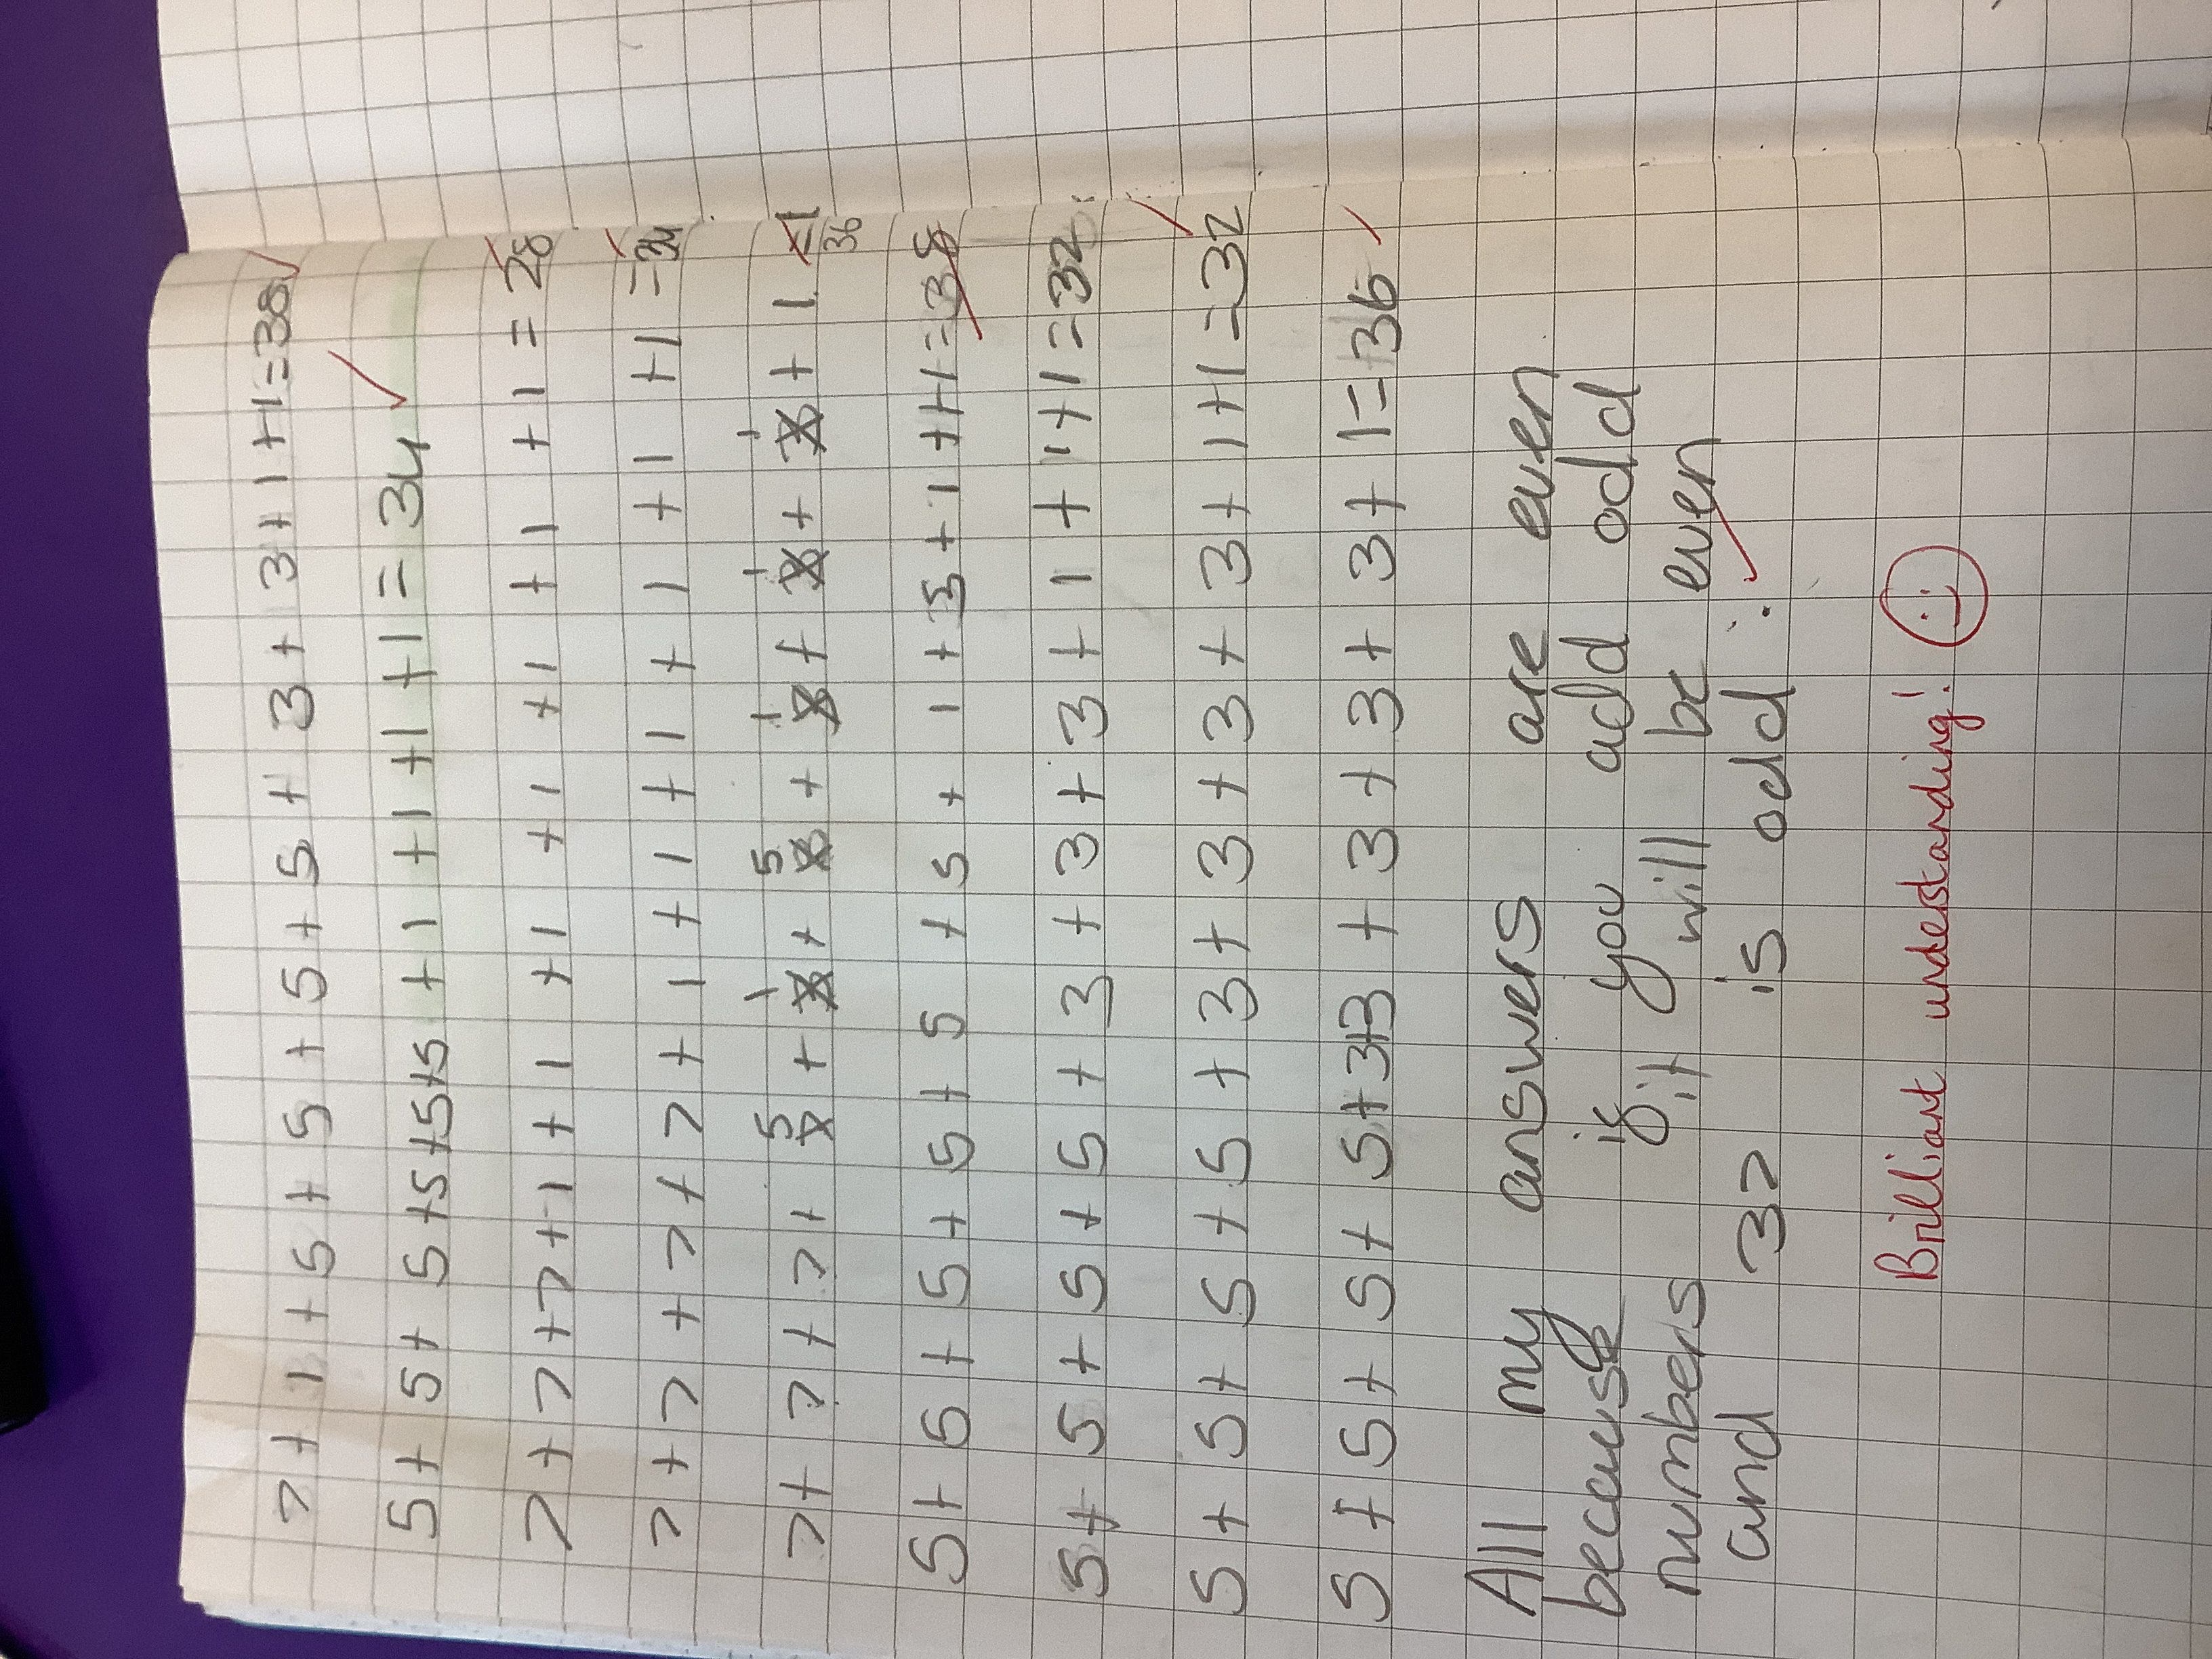 7 + 1 + 5 + 5 + 5 + 5 + 3 + 3 + 1 + 1 = 38
5 + 5 + 5 + 5 + 5 + 5 + 1 + 1 + 1 + 1 = 34
7 + 7 + 7 + 1 + 1 + 1 + 1 + 1 + 1 + 1 = 28
7 + 7 + 7 + 7 + 1 + 1 + 1 + 1 + 1 + 1 = 34
7 + 7 + 7 + 5 + 1 + 5 + 1 + 1 + 1 + 1 =
36
5 + 5 + 5 + 5 + 5 + 5 + 1 + 3 + 1 + 1 = 38
5 + 5 + 5 + 5 + 3 + 3 + 3 + 1 + 1 + 1 = 32
5 + 5 + 5 + 5 + 3 + 3 + 3 + 3 + 1 + 1 = 32
5 + 5 + 5 + 5 + 3 + 3 + 3 + 3 + 3 + 1 = 36
All my answers are even
because if you add odd
numbers it will be even
and 37 is odd ∴
Brilliant understanding!